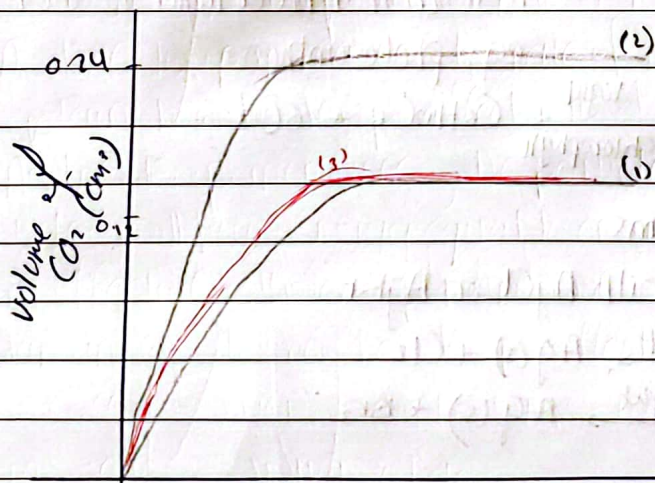 (2)
0.24
(3)
(1)
Volume of
CO2 (cm3)
0.12